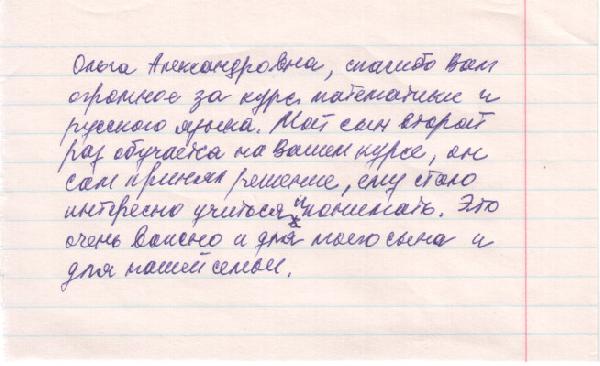 Ольга Александровна, спасибо Вам
огромное за курс математики и
русского языка. Мой сын второй
раз обучается на Вашем курсе, он
сам принял решение, ему стало
интересно учиться и понимать. Это
очень важно и для моего сына и
для нашей семьи.